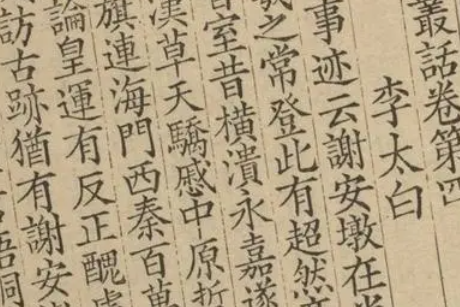 叢話卷第四
李太白
事迹云謝安墩在
羲之常登此有超然
室昔橫潰永嘉遂
漢草天驕慼中原哲
旗連海門西秦百萬
論皇運有反正醜虜
訪古跡猶有謝安
梧桐